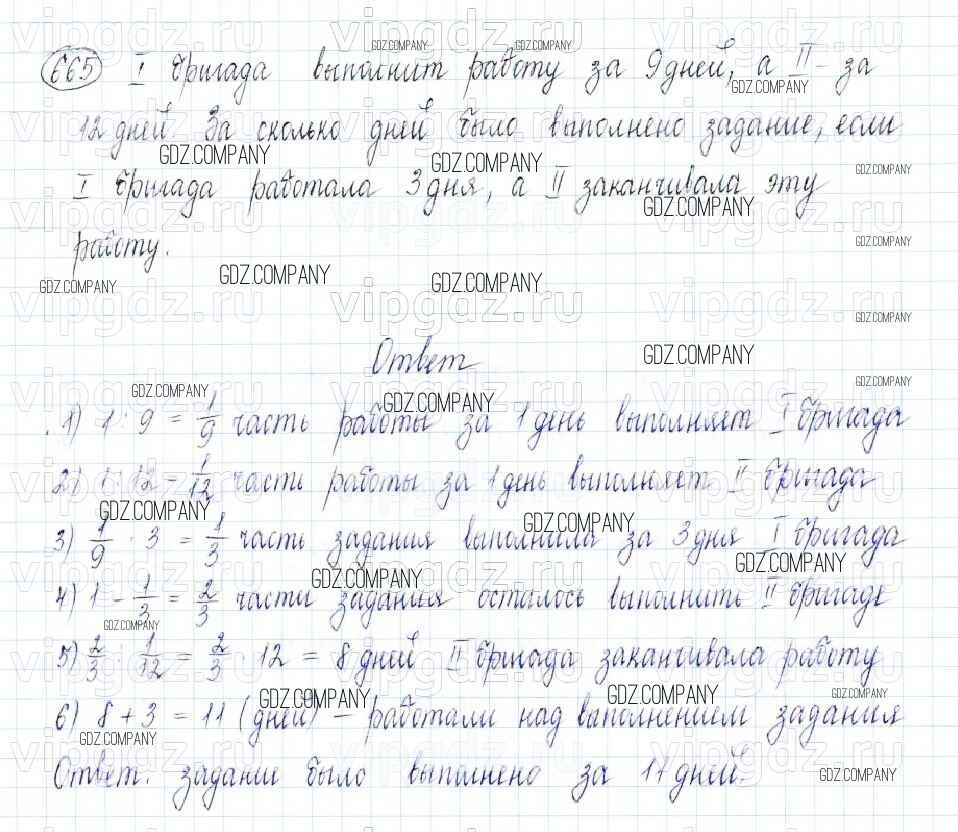 665 I бригада выполнит работу за 9 дней, а II - за
12 дней. За сколько дней было выполнено задание, если
I бригада работала 3 дня, а II заканчивала эту
работу.
Ответ
1) 1 : 9 = 1/9 часть работы за 1 день выполняет I бригада
2) 1 : 12 = 1/12 часть работы за 1 день выполняет II бригада
3) 1/9 · 3 = 1/3 часть задания выполнила за 3 дня I бригада
4) 1 - 1/3 = 2/3 части задания осталось выполнить II бригаде
5) 2/3 : 1/12 = 2/3 · 12 = 8 дней II бригада заканчивала работу
6) 8 + 3 = 11 (дней) - работали над выполнением задания
Ответ. задание было выполнено за 11 дней.
GDZ.COMPANY
vipgdz.ru